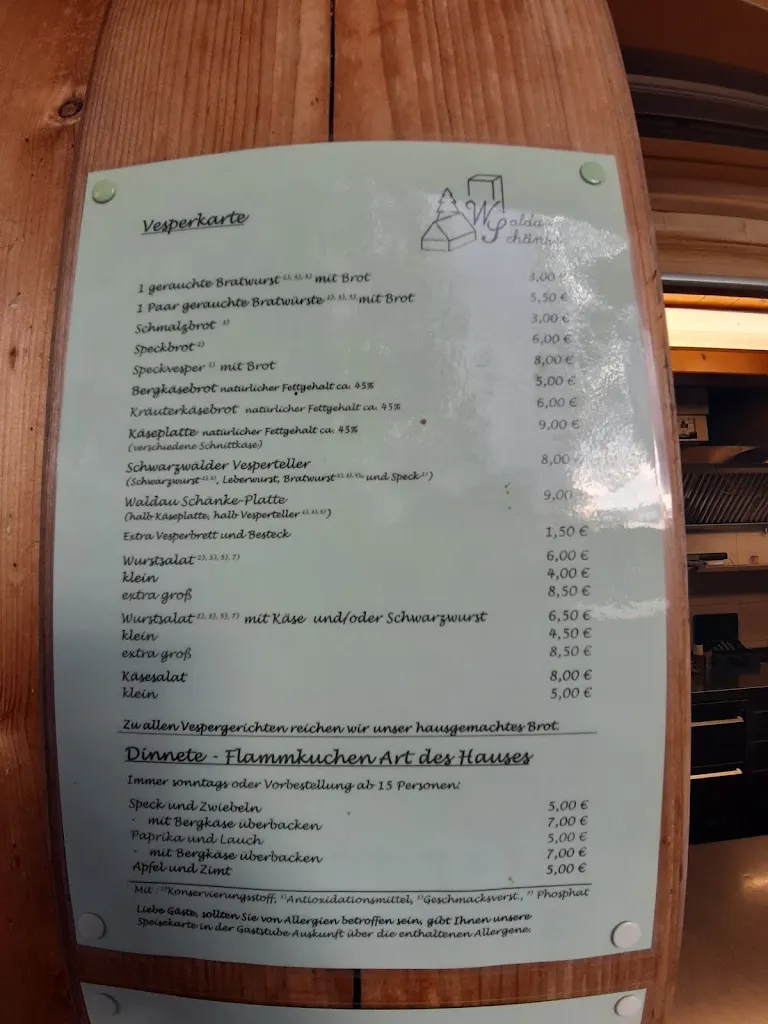 Waldau
Schänke
Vesperkarte
1 gerauchte Bratwurst 2), 3), 5) mit Brot 3,00 €
1 Paar gerauchte Bratwürste 2), 3), 5) mit Brot 5,50 €
Schmalzbrot 3,00 €
Speckbrot 2) 6,00 €
Speckvesper 2) mit Brot 8,00 €
Bergkäsebrot natürlicher Fettgehalt ca. 45% 5,00 €
Kräuterkäsebrot natürlicher Fettgehalt ca. 45% 6,00 €
Käseplatte natürlicher Fettgehalt ca. 45% 9,00 €
(verschiedene Schnittkäse)
Schwarzwälder Vesperteller 8,00
(Schwarzwurst, Leberwurst, Bratwurst und Speck)
Waldau Schänke-Platte 9,00
(halb Käseplatte, halb Vesperteller)
Extra Vesperbrett und Besteck 1,50 €
Wurstsalat 2), 3), 5), 7) 6,00 €
klein 4,00 €
extra groß 8,50 €
Wurstsalat 2), 3), 5), 7) mit Käse und/oder Schwarzwurst 6,50 €
klein 4,50 €
extra groß 8,50 €
Käsesalat 8,00 €
klein 5,00 €
Zu allen Vespergerichten reichen wir unser hausgemachtes Brot.
Dinnete - Flammkuchen Art des Hauses
Immer sonntags oder Vorbestellung ab 15 Personen:
Speck und Zwiebeln 5,00 €
- mit Bergkäse überbacken 7,00 €
Paprika und Lauch 5,00 €
- mit Bergkäse überbacken 7,00 €
Apfel und Zimt 5,00 €
Mit : 2)Konservierungsstoff, 3)Antioxidationsmittel, 5)Geschmacksverst., 7) Phosphat
Liebe Gäste, sollten Sie von Allergien betroffen sein, gibt Ihnen unsere
Speisekarte in der Gaststube Auskunft über die enthaltenen Allergene.